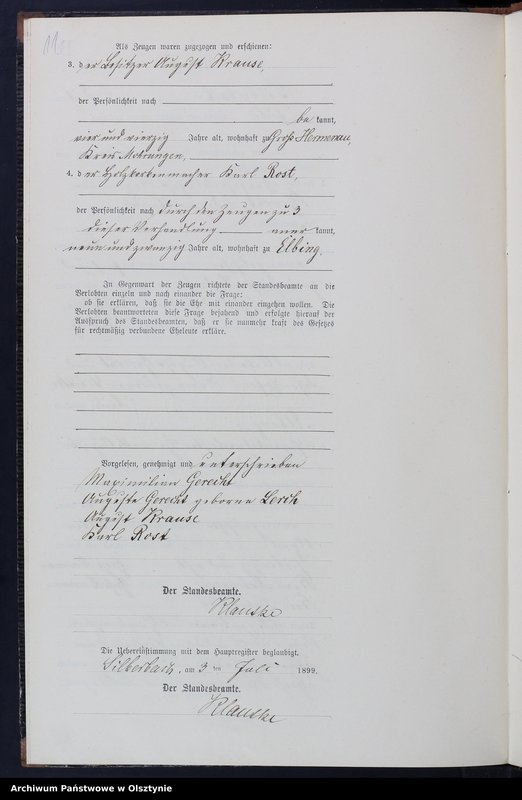 Als Zeugen waren zugezogen und erschienen:
3. der Besitzer August Krause,
der Persönlichkeit nach
bekannt,
vier und vierzig Jahre alt, wohnhaft zu Groß Hermenau,
Kreis Mohrungen,
4. der Holzkorbenmacher Karl Rost,
der Persönlichkeit nach durch den Zeugen zu 3
dieser Verhandlung anerkannt,
neun und zwanzig Jahre alt, wohnhaft zu Elbing.
In Gegenwart der Zeugen richtete der Standesbeamte an die
Verlobten einzeln und nach einander die Frage:
ob sie erklären, daß sie die Ehe mit einander eingehen wollen. Die
Verlobten beantworteten diese Frage bejahend und erfolgte hierauf der
Ausspruch des Standesbeamten, daß er sie nunmehr kraft des Gesetzes
für rechtmäßig verbundene Eheleute erkläre.
Vorgelesen, genehmigt und unterschrieben
Maximilian Gerecht
Auguste Gerecht geborne Lerch
August Krause
Karl Rost
Der Standesbeamte.
Klauske
Die Uebereinstimmung mit dem Hauptregister beglaubigt.
Silberbach, am 3 ten Juli 1899.
Der Standesbeamte.
Klauske
Archiwum Państwowe w Olsztynie